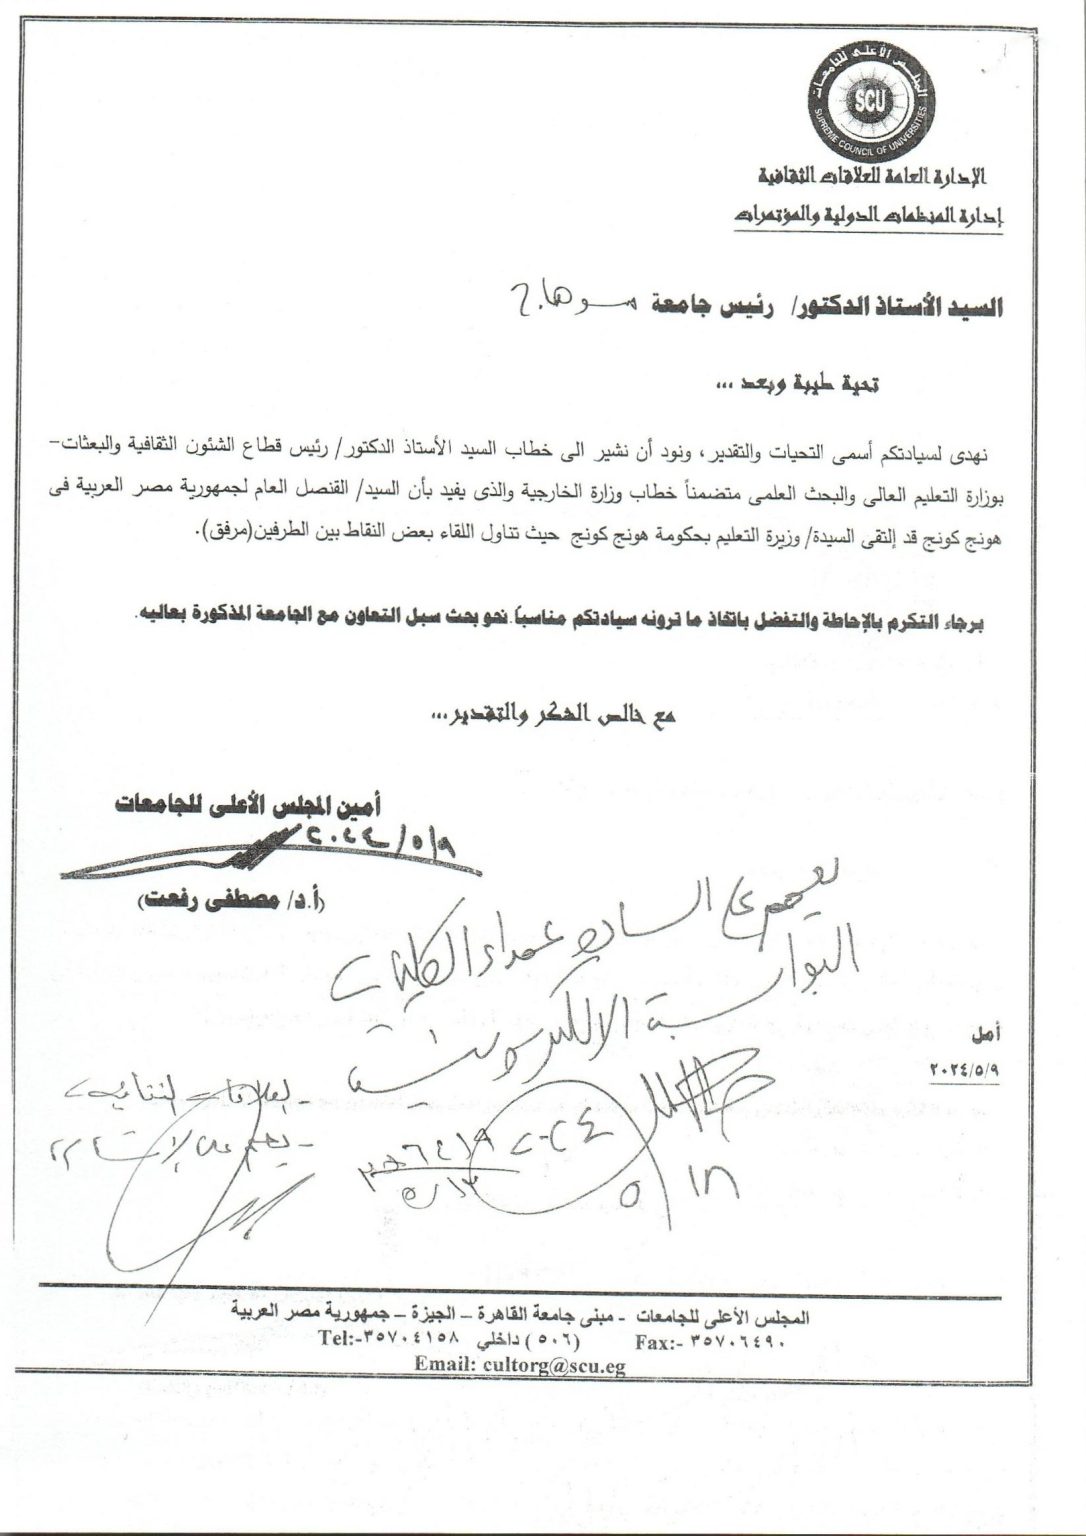 المجلس الأعلى للجامعات
SCU
SUPREME COUNCIL OF UNIVERSITIES
الإدارة العامة للعلاقات الثقافية
إدارة المنظمات الدولية والمؤتمرات
السيد الأستاذ الدكتور/ رئيس جامعة سوهاج
تحية طيبة وبعد ...
نهدى لسيادتكم أسمى التحيات والتقدير ، ونود أن نشير الى خطاب السيد الأستاذ الدكتور/ رئيس قطاع الشئون الثقافية والبعثات-
بوزارة التعليم العالى والبحث العلمى متضمناً خطاب وزارة الخارجية والذى يفيد بأن السيد/ القنصل العام لجمهورية مصر العربية فى
هونج كونج قد إلتقى السيدة/ وزيرة التعليم بحكومة هونج كونج حيث تناول اللقاء بعض النقاط بين الطرفين(مرفق).
برجاء التكرم بالإحاطة والتفضل باتخاذ ما ترونه سيادتكم مناسباً نحو بحث سبل التعاون مع الجامعة المذكورة بعاليه.
مع خالص الشكر والتقدير...
أمين المجلس الأعلى للجامعات
٢٠٢٤/٥/٩
(أ.د/ مصطفى رفعت)
على السادة عمداء الكليات
البوابة الالكترونية
أمل
٢٠٢٤/٥/٩
- العلاقات الثقافية
٢٠٢٤
٥/١٣
المجلس الأعلى للجامعات - مبنى جامعة القاهرة – الجيزة – جمهورية مصر العربية
Tel:-٣٥٧٠٤١٥٨ داخلي (٥٠٦) Fax:- ٣٥٧٠٦٤٩٠
Email: cultorg@scu.eg